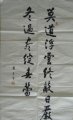 莫道浮云终蔽日严
冬过尽绽春蕾